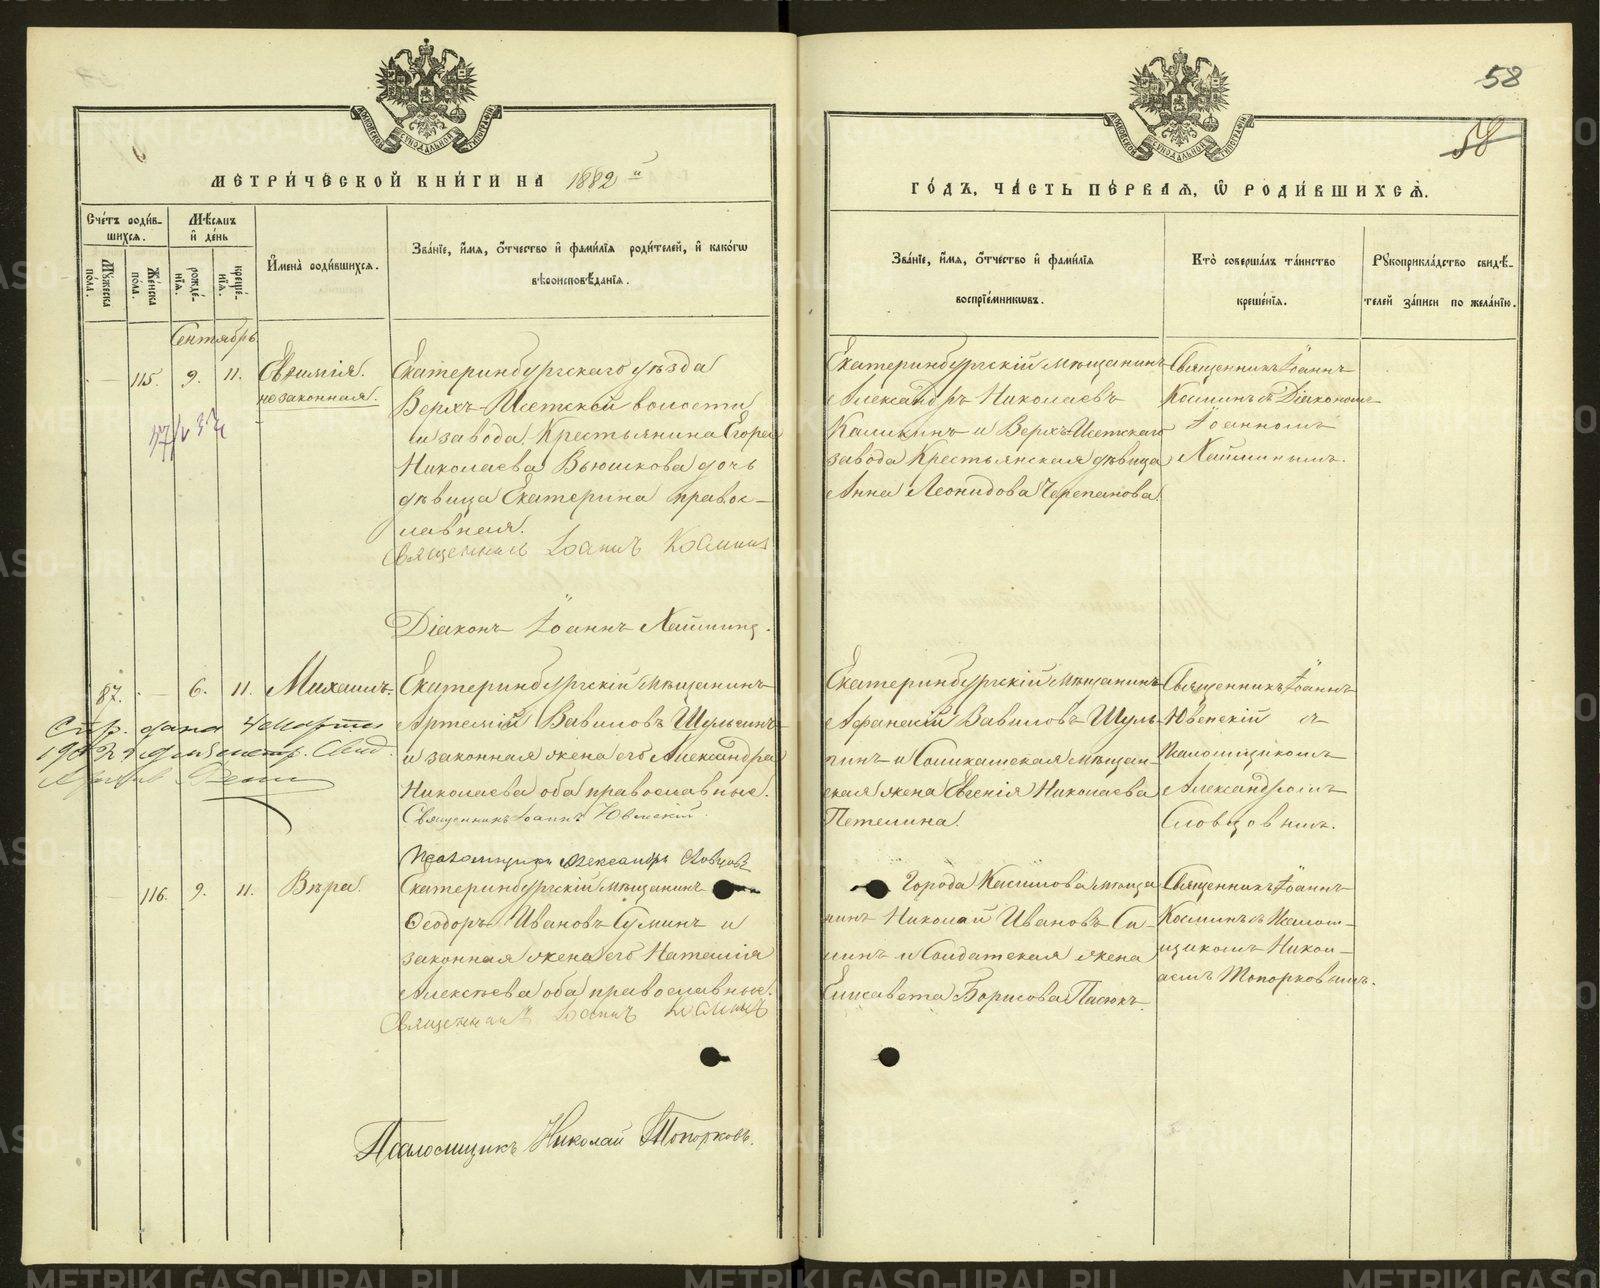 58
58
МЕТРИЧЕСКОЙ КНИГИ НА 1882 й
ГОДЪ, ЧАСТЬ ПЕРВАЯ, Ѡ РОДИВШИХСЯ.
Счетъ родившихся.
Мѣсяцъ и день
Имена родившихся.
Званіе, имя, отчество и фамилія родителей, и какогω вѣроисповѣданія.
Мужеска пола.
Женска пола.
рожденія.
крещенія.
Званіе, имя, отчество и фамилія воспріемникωвъ.
Кто совершалъ таинство крещенія.
Рукоприкладство свидѣтелей записи по желанію.
Сентябрь.
115. 9. 11. Евѳимія.
незаконная.
Екатеринбургскаго уѣзда
Верхъ-Исетской волости
и завода. Крестьянина Егора
Николаева Вьюшкова дочь
дѣвица Екатерина право-
славная.
Священникъ Іоаннъ Косминъ
Діаконъ Іоаннъ Хайминъ.
Екатеринбургскій мѣщанинъ
Александръ Николаевъ
Камкинъ и Верхъ-Исетскаго
завода Крестьянская дѣвица
Анна Леонидова Черепанова.
Священникъ Іоаннъ
Косминъ съ Діакономъ
Іоанномъ
Хайминымъ.
87. 6. 11. Михаилъ.
Екатеринбургскій мѣщанинъ
Артемій Вавиловъ Шульгинъ
и законная жена его Александра
Николаева оба православные.
Священникъ Іоаннъ Ювенскій.
Псаломщикъ Александръ Словцовъ
Екатеринбургскій мѣщанинъ
Афанасій Вавиловъ Шуль-
гинъ и Соликамская мѣщан-
ская жена Евгенія Николаева
Петелина.
Священникъ Іоаннъ
Ювенскій съ
Псаломщикомъ
Александромъ
Словцовымъ.
116. 9. 11. Вѣра.
Екатеринбургскій мѣщанинъ
Ѳеодоръ Ивановъ Суминъ и
законная жена его Наталія
Алексѣева оба православные.
Священникъ Іоаннъ Косминъ
Псаломщикъ Николай Топорковъ.
Города Касимова мѣща
нинъ Николай Ивановъ Су-
минъ и Солдатская жена
Елисавета Борисова Пасюкъ.
Священникъ Іоаннъ
Косминъ съ Псалом-
щикомъ Никол-
аемъ Топорковымъ.
METRIKI.GASO-URAL.RU